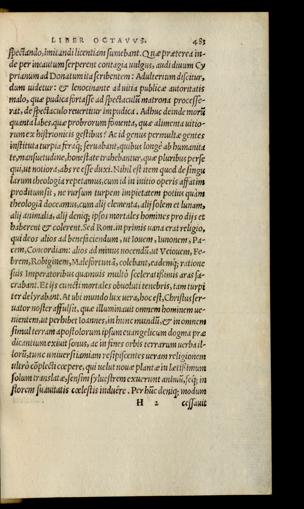 LIBER OCTAVVS. 483
spectando, imitandi licentiam sumebant. Quæ præterea in-
de per incautum serperent contagia uulgus, audi diuum Cy
prianum ad Donatum ita scribentem: Adulterium discitur,
dum uidetur: & lenocinante ad uitia publicæ autoritatis
malo, quæ pudica fortasse ad spectaculũ matrona processe-
rat, de spectaculo reuertitur impudica. Adhuc deinde morũ
quanta labes, quæ probrorum fomenta, quæ alimenta uitio-
rum ex histrionicis gestibus? Ac id genus permultæ gentes
instituta turpia feraq; seruabant, quibus longè ab humanita
te, mansuetudine, honestate trahebantur, quæ pluribus perse
qui, ut notiora, abs re esse duxi. Nihil est item quod de singu
larum theologia repetamus, cum id in initio operis affatim
præditum sit, ne rursum turpem impietatem potius quàm
theologiã doceamus, cum alij elementa, alij solem et lunam,
alij animalia, alij deniq; ipsos mortales homines pro dijs et
haberent & colerent. Sed Rom. in primis uana erat religio,
qui deos alios ad beneficiendum, ut Iouem, Iunonem, Pa-
cem, Concordiam: alios ad minus nocendũ, ut Veiouem, Fe-
brem, Robiginem, Malefortunã, colebant, eademq; ratione
suis Imperatoribus quamuis multò sceleratißimis aras sa-
crabant. Et ijs cuncti mortales obuoluti tenebris, tam turpi
ter delyrabant. At ubi mundo lux uera, hoc est, Christus ser-
uator noster affulsit, quæ illuminauit omnem hominem ue-
nientem, ut perhibet Ioannes, in hunc mundũ, & in omnem
simul terram apostolorum ipsum euangelicum dogma præ
dicantium exiuit sonus, ac in fines orbis terrarum uerba il-
lorũ, tunc uniuersi iam iam resipiscentes ueram religionem
ultrò cõplecti cœpere, qui uelut nouæ plantæ in lætißimum
solum translatæ, sensim syluestrem exuerunt animũ, seq; in
florem suauitatis cœlestis induêre. Per hũc deniq; modum
H 2 cessauit